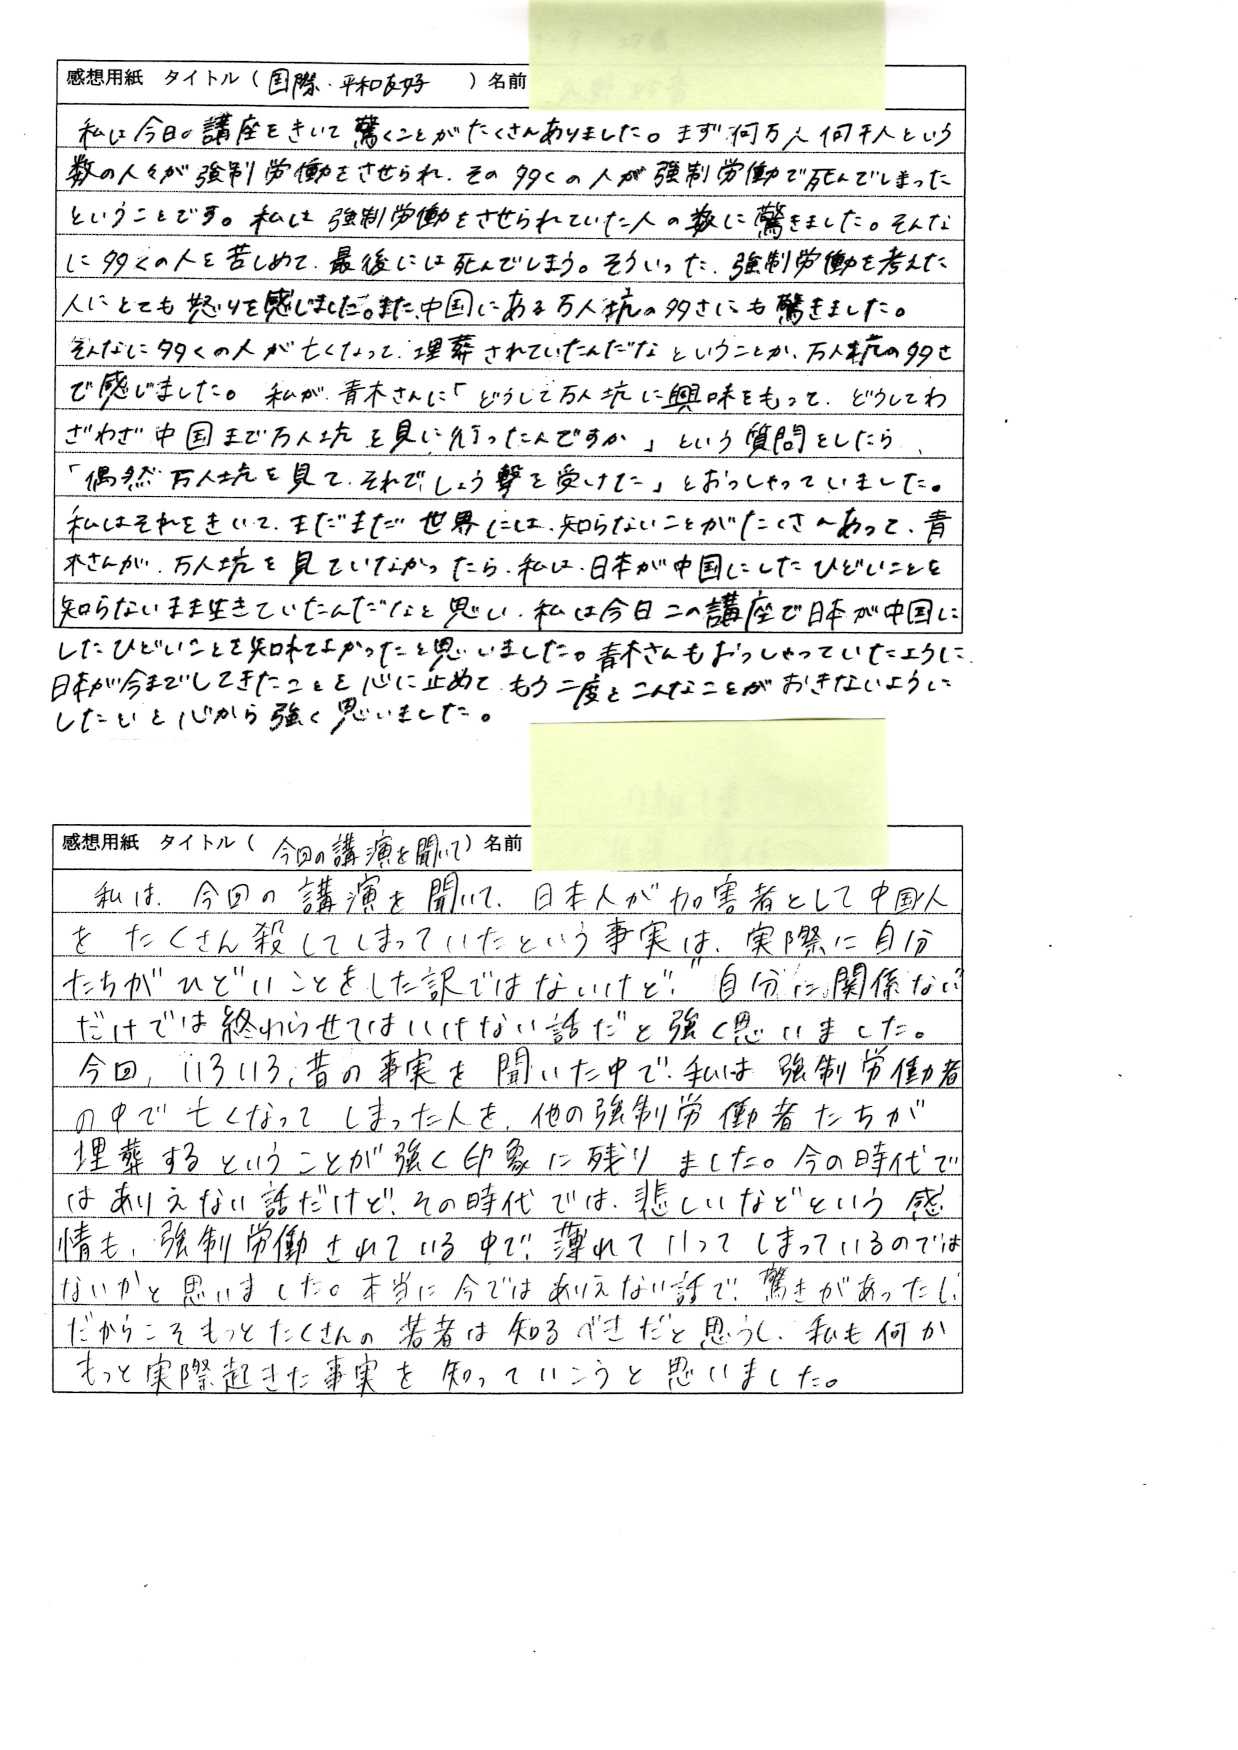 感想用紙 タイトル( 国際・平和友好 ) 名前
私は今日の講座をきいて驚くことがたくさんありました。まず何万人何千人という
数の人々が強制労働をさせられ、その多くの人が強制労働で死んでしまった
ということです。私は強制労働をさせられていた人の数に驚きました。そんな
に多くの人を苦しめて、最後には死んでしまう。そういった、強制労働を考えた
人にとても怒りを感じました。また、中国にある万人坑の多さにも驚きました。
そんなに多くの人が亡くなって、埋葬されていたんだなということが、万人坑の多さ
で感じました。私が、青木さんに「どうして万人坑に興味をもって、どうしてわ
ざわざ中国まで万人坑を見に行ったんですか」という質問をしたら、
「偶然万人坑を見て、それでしょう撃を受けた」とおっしゃっていました。
私はそれをきいて、まだまだ世界には、知らないことがたくさんあって、青
木さんが、万人坑を見ていなかったら、私は、日本が中国にしたひどいことを
知らないまま生きていたんだなと思い、私は今日この講座で日本が中国に
したひどいことを知れてよかったと思いました。青木さんもおっしゃっていたように、
日本が今までしてきたことを心に止めて、もう二度とこんなことがおきないように
したいと心から強く思いました。
感想用紙 タイトル( 今回の講演を聞いて ) 名前
私は、今回の講演を聞いて、日本人が加害者として中国人
をたくさん殺してしまっていたという事実は、実際に自分
たちがひどいことをした訳ではないけど、"自分に関係ない"
だけでは終わらせてはいけない話だと強く思いました。
今回、いろいろ、昔の事実を聞いた中で、私は強制労働者
の中で亡くなってしまった人を、他の強制労働者たちが
埋葬するということが強く印象に残りました。今の時代で
はありえない話だけど、その時代では、悲しいなどという感
情も、強制労働されている中で、薄れていってしまっているのでは
ないかと思いました。本当に今ではありえない話で、驚きがあったし、
だからこそもっとたくさんの若者は知るべきだと思うし、私も何か
もっと実際起きた事実を知っていこうと思いました。